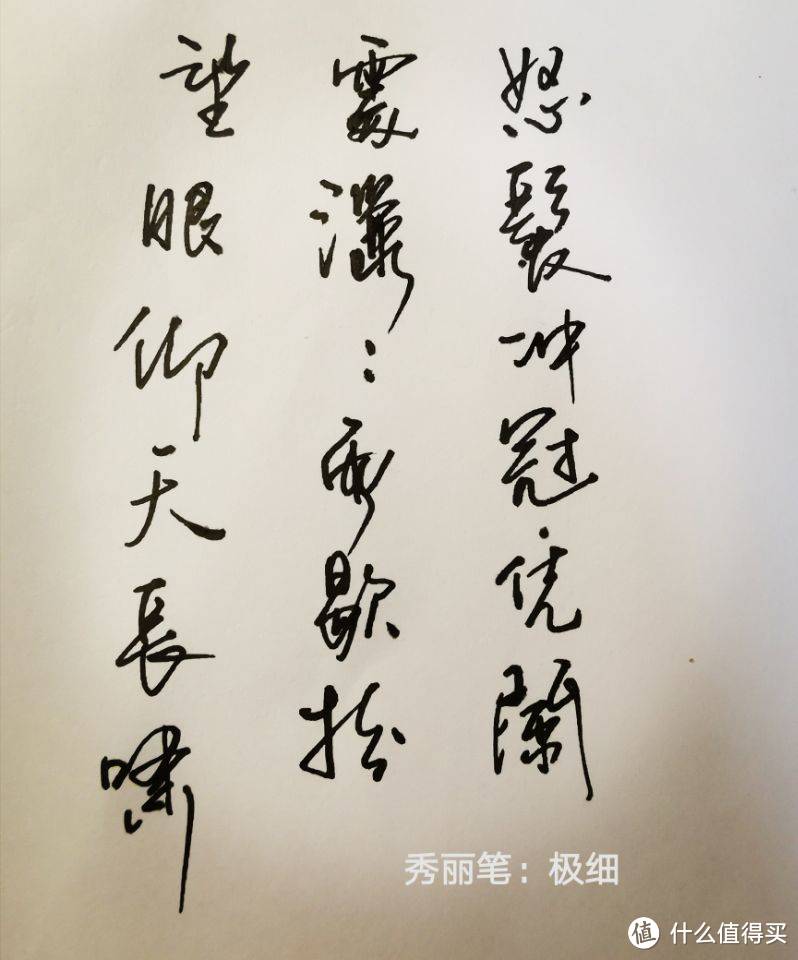 怒髮冲冠凭闌
處瀟:雨歇抬
望眼仰天長嘯
秀丽笔：极细
值 什么值得买